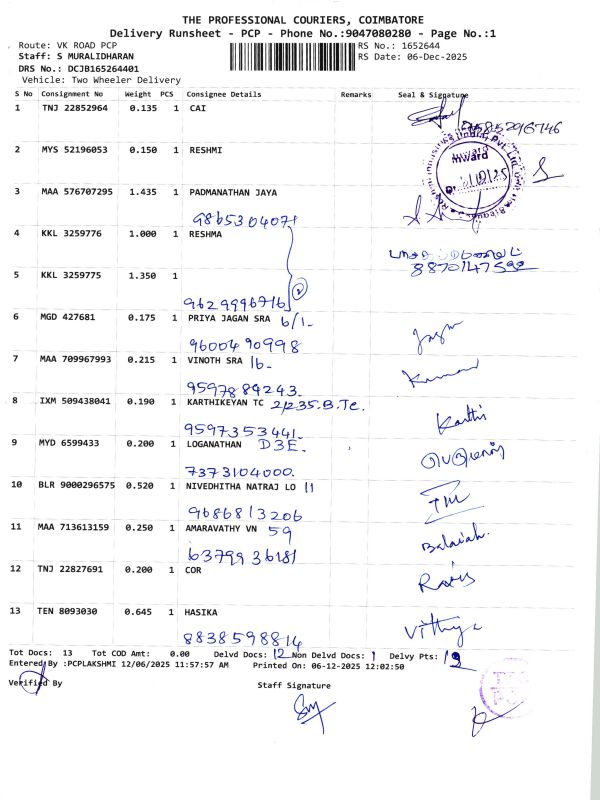 THE PROFESSIONAL COURIERS, COIMBATORE
Delivery Runsheet - PCP - Phone No.:9047080280 - Page No.:1
Route: VK ROAD PCP RS No.: 1652644
Staff: S MURALIDHARAN RS Date: 06-Dec-2025
DRS No.: DCJB165264401
Vehicle: Two Wheeler Delivery
S No Consignment No Weight PCS Consignee Details Remarks Seal & Signature
1 TNJ 22852964 0.135 1 CAI
2 MYS 52196053 0.150 1 RESHMI
Inward
3 MAA 576707295 1.435 1 PADMANATHAN JAYA
9865304071
4 KKL 3259776 1.000 1 RESHMA
8870147590
5 KKL 3259775 1.350 1
2
9629996716
6 MGD 427681 0.175 1 PRIYA JAGAN SRA 6/1-
9600490998
7 MAA 709967993 0.215 1 VINOTH SRA 16- Kumar
9597884243
8 IXM 509438041 0.190 1 KARTHIKEYAN TC 2/235.B.Tc. Karthi
9597353441.
9 MYD 6599433 0.200 1 LOGANATHAN D3E.
7373104000.
10 BLR 9000296575 0.520 1 NIVEDHITHA NATRAJ LO 11
9686813206
11 MAA 713613159 0.250 1 AMARAVATHY VN 59 Balaiah.
6379936181
12 TNJ 22827691 0.200 1 COR
13 TEN 8093030 0.645 1 HASIKA Vithya
8838598814
Tot Docs: 13 Tot COD Amt: 0.00 Delvd Docs: 12 Non Delvd Docs: 1 Delvy Pts:
Entered By :PCPLAKSHMI 12/06/2025 11:57:57 AM Printed On: 06-12-2025 12:02:50
Verified By Staff Signature